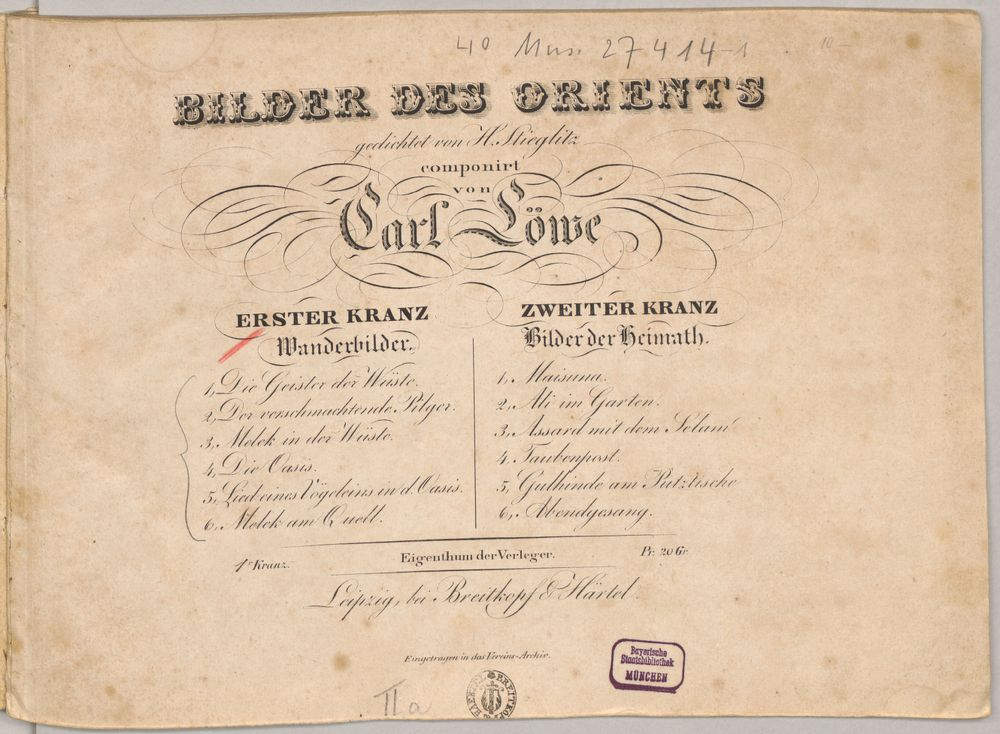 4° Mus. 27 414-1
10-
BILDER DES ORIENTS
gedichtet von H. Stieglitz
componirt
von
Carl Löwe
ERSTER KRANZ
Wanderbilder.
1, Die Geister der Wüste.
2, Der verschmachtende Pilger.
3, Melek in der Wüste.
4, Die Oasis.
5, Lied eines Vögeleins in d. Oasis.
6, Melek am Quell.
ZWEITER KRANZ
Bilder der Heimath.
1, Maisuna.
2, Ali im Garten.
3, Assard mit dem Selam
4, Taubenpost.
5, Gulhinde am Putztische
6, Abendgesang.
1r Kranz.
Eigenthum der Verleger.
Pr. 20 Gr.
Leipzig, bei Breitkopf & Härtel.
Eingetragen in das Vereins-Archiv.
IIa
BREITKOPF & HAERTEL
Bayerische
Staatsbibliothek
MÜNCHEN